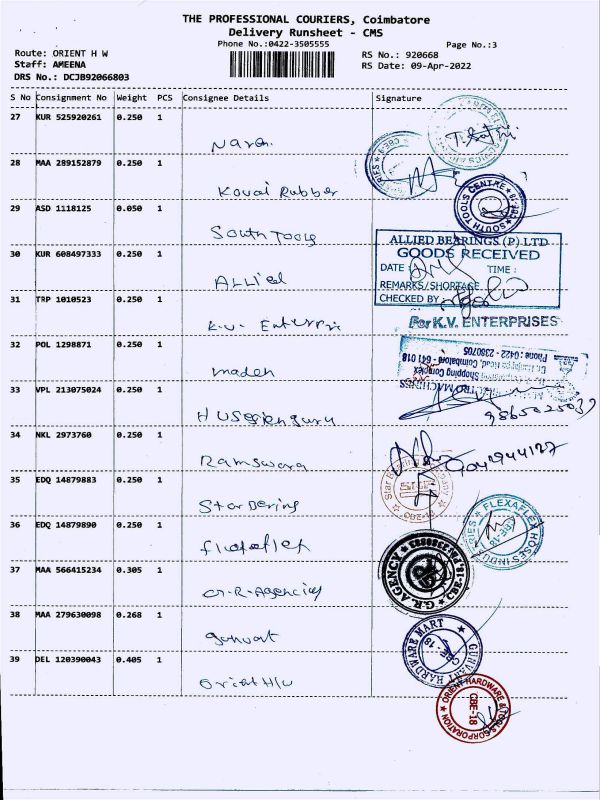 THE PROFESSIONAL COURIERS, Coimbatore
Delivery Runsheet - CMS
Phone No.:0422-3505555
Page No.:3
Route: ORIENT H W
RS No.: 920668
Staff: AMEENA
RS Date: 09-Apr-2022
DRS No.: DCJB92066803
S No Consignment No Weight PCS Consignee Details Signature
27 KUR 525920261 0.250 1
Naren
28 MAA 289152879 0.250 1
Kovai Rubber
SOUTH TOOLS CENTRE
29 ASD 1118125 0.050 1
South Tools
ALLIED BEARINGS (P) LTD
GOODS RECEIVED
30 KUR 608497333 0.250 1
DATE : TIME :
REMARKS/SHORTAGE
Allied
CHECKED BY
31 TRP 1010523 0.250 1
For K.V. ENTERPRISES
K.V.
32 POL 1298871 0.250 1
Phone : 0422 - 2380705
Road, Coimbatore - 641 018
Shopping Complex
33 VPL 213075024 0.250 1
34 NKL 2973760 0.250 1
9041944127
35 EDQ 14879883 0.250 1
CBE-18
Star
FLEXAFLEX HOSES INDUSTRIES
36 EDQ 14879890 0.250 1
37 MAA 566415234 0.305 1
G.R. AGENCY
G.R. Agencies
38 MAA 279630098 0.268 1
GUNVANT HARDWARE MART
CBE - 18
39 DEL 120390043 0.405 1
Orient H/W
ORIENT HARDWARE & TOOLS CORPORATION
CBE-18